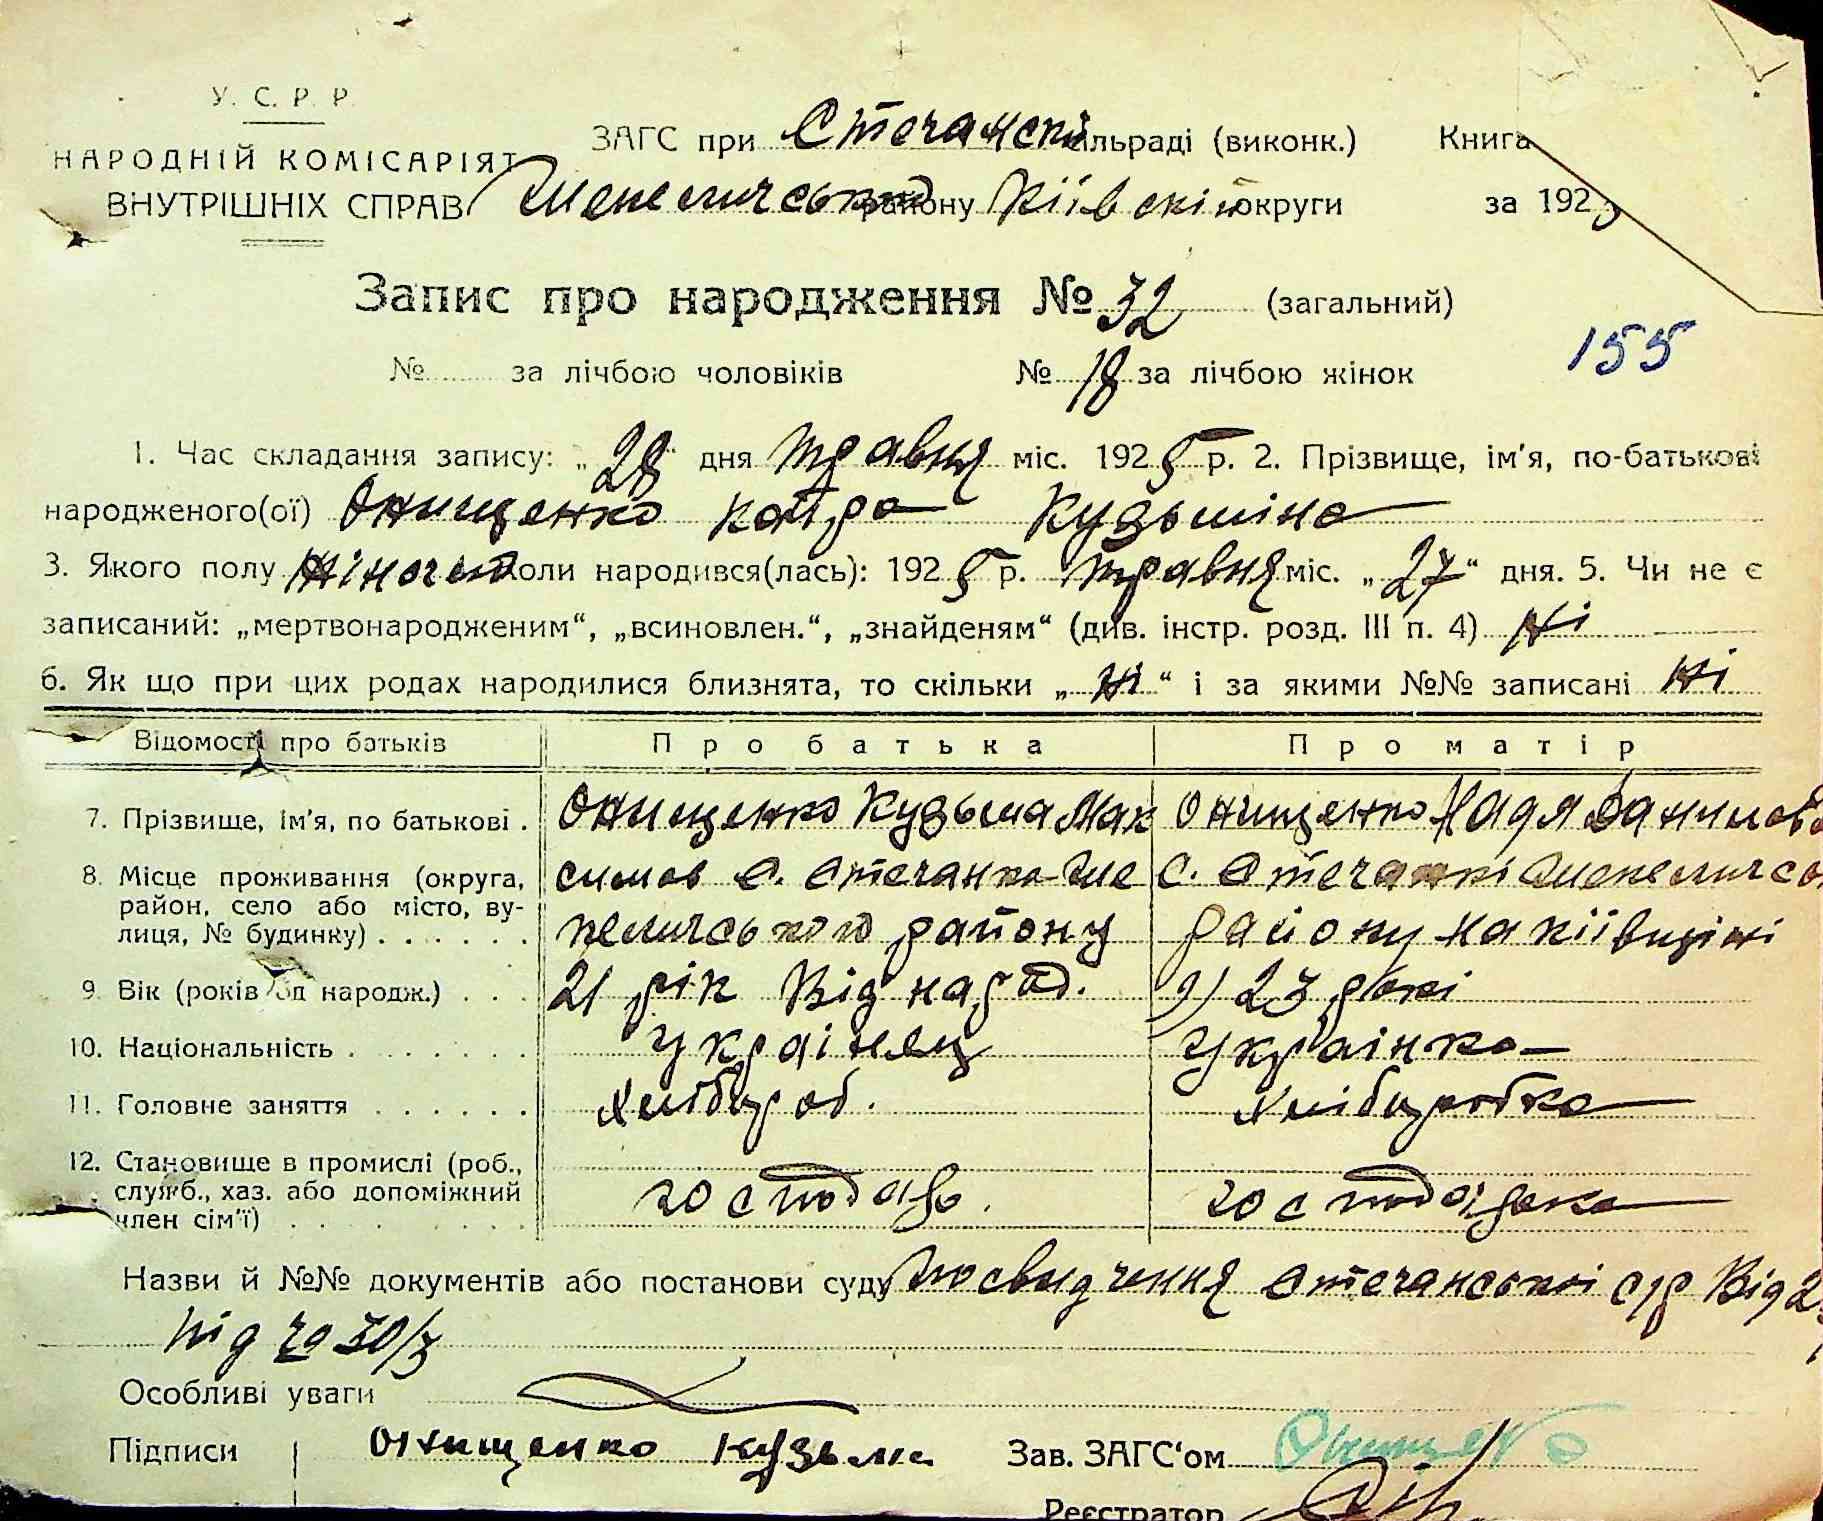 У. С. Р. Р.
НАРОДНІЙ КОМІСАРІЯТ
ВНУТРІШНІХ СПРАВ
ЗАГС при Стечанскі сільраді (виконк.) Книга
Шепеличського району Кіівскій округи за 192
Запис про народження № 32 (загальний)
№ за лічбою чоловіків № 18 за лічбою жінок
155
1. Час складання запису: „28“ дня травня міс. 1925 р. 2. Прізвище, ім'я, по-батькові
народженого(ої) Онищенко Катра Кузьміна
3. Якого полу жіночого Коли народився(лась): 1925 р. травня міс. „27“ дня. 5. Чи не є
записаний: „мертвонародженим“, „всиновлен.“, „знайденям“ (див. інстр. розд. III п. 4) Ні
6. Як що при цих родах народилися близнята, то скільки „ні“ і за якими №№ записані ні
Відомості про батьків Про батька Про матір
7. Прізвище, ім'я, по батькові . Онищенко Кузьма Мак Онищенко Надя Данилов
8. Місце проживання (округа, симов с. Стечанка Ше С. Стечанкі Шепеличсь
район, село або місто, ву-
лиця, № будинку) . . . . . . пеличського району району на кіівщіні
9. Вік (років од народж.) . . . 21 рік Від народ. 9) 23 рокі
10. Національність . . . . . . . . Украінец Украінка
11. Головне заняття . . . . . . Хлібороб. Хліборобка
12. Становище в промислі (роб.,
служб., хаз. або допоміжний господарь. господарька
член сім'ї) . . . . . . . .
Назви й №№ документів або постанови суду Посвидчення Стечанськоі с/р Від 2
під № 30/3
Особливі уваги
Підписи Онищенко Кузьма Зав. ЗАГС'ом Онищенко
Реєстратор